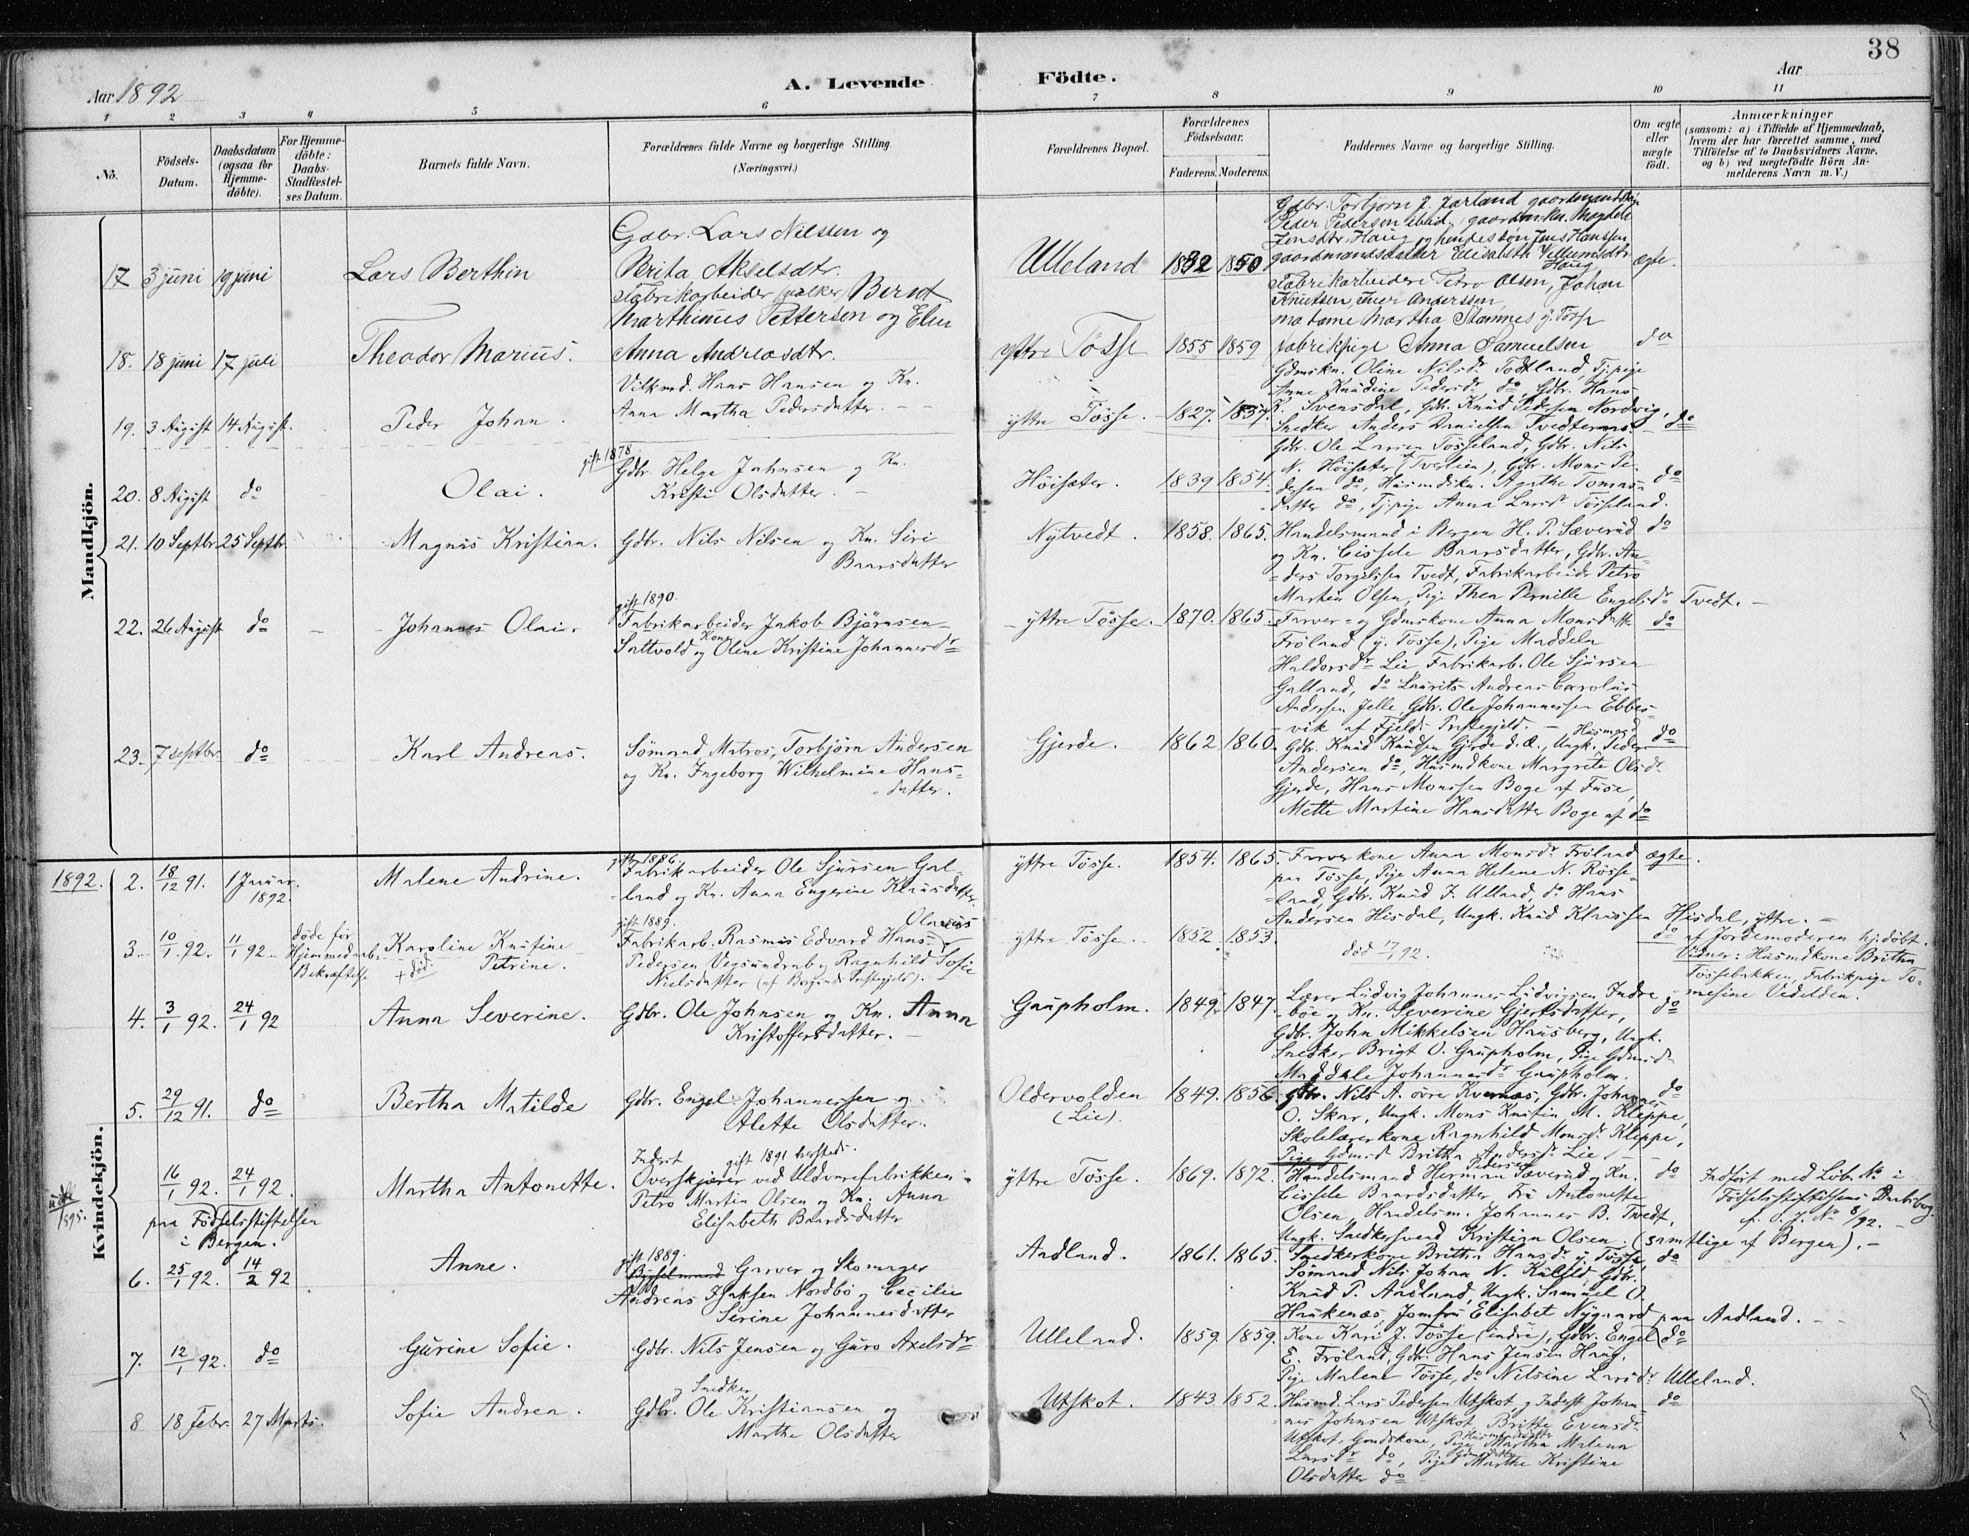 38
Aar 1892
A. Levende Födte.
Aar
1 2 3 4 5 6 7 8 9 10 11
No.
Födsels-Datum.
Daabsdatum (ogsaa for Hjemme-döbte).
For Hjemme-döbte: Daabs-Stadfæstel-ses Datum.
Barnets fulde Navn.
Forældrenes fulde Navne og borgerlige Stilling. (Næringsvei.)
Forældrenes Bopæl.
Forældrenes Födselsaar.
Faderens. Moderens.
Faddernes Navne og borgerlige Stilling.
Om ægte eller uægte födt.
Anmærkninger
(saasom: a) i Tilfælde af Hjemmedaab,
hvem der har forrettet samme, med
Tilföielse af to Daabsvidners Navne,
og b) ved uægtefödte Börn An-
melderens Navn m. V.)
Mandkjön.
17 3 juni 19 juni
Lars Berthin
Gdbr. Lars Nilsen og
Brita Akselsdtr.
Ulleland 1832 1850
Gdbr. Torbjørn J. Jarland
Peder Pedersen ibid,
Jensdtr. Haug og hendes søn Jens Hansen
gaardmandsdatter Elisabeth Villumsdtr
Haug
ægte.
18. 18 juni 17 juli
Theodor Marius.
Fabrikarbeider Bernt
Marthinus Pettersen og Elen
Anna Andreasdtr.
yttre Tösse 1855 1859
Fabrikarbeidere Petro Olsen, Johan
Knutsen, Iver Anderssen
madame Martha Stamnes y. Tösse
fabrikpige Anna Samuelsen
do
19. 3 August 14 August.
Peder Johan.
Hans Hansen og Kn.
Anna Martha Pedersdatter.
yttre Tösse. 1827. 1837.
Gdmskn. Oline Nilsdr Tödtland, Tj.pige
Anne Knudine Pedersdr do, Gdbr. Hans
K. Svensdal, Gdbr. Knud Pedersen Nordvig,
Snedker Anders Danielsen
do
20. 8 August do
Olai.
gift 1878
Gdbr. Helge Johnsen og Kn.
Kristi Olsdatter.
Höisæter. 1839 1854.
Gdbr. Ole Larsen Tösseland, Gdbr. Nils
N. Höisæter, Gdbr. Mons Pe-
dersen do, Husmdskn. Agathe Tomas-
datter do, Tj.pige Anna Larsdr Tösseland.
do
21. 10 Septbr. 25 Septbr.
Magnus Kristian.
Gdbr. Nils Nilsen og Kn. Siri
Baarsdatter
Nytvedt. 1858. 1865.
Handelsmand i Bergen H. P. Sæverud
og Kn. Cissele Baarsdatter, Gdbr. An-
ders Torgilssen Tvedt, Fabrikarbeider Petro
Martin Olsen, Pige Thea Pernille Engelsdr Tvedt.
do
22. 26 August do
Johannes Olai.
gift 1890.
Fabrikarbeider Jakob Björnsen
og Kone Oline Kristine Johannesdr
yttre Tösse. 1870. 1865.
Farver- og Gdmskone Anna Monsdatt.
Fröland (y. Tösse), Pige Maddela
Haldorsdr Lie Fabrikarb. Ole Sjursen
Galland, do Laurits Andreas Carolus
Andersen Jelle, Gdbr. Ole Johannessen Ebbes-
vik af Fjeld Præstegjeld.
do
23. 7 septbr. do
Karl Andreas.
Sömand, Matros, Torbjörn Andersen
og Kn. Ingeborg Wilhelmine Hans-
datter.
Gjerde. 1862 1860.
Husmd
Gdbr. Knud Knudsen Gjerde d. Æ., Ungk. Peder
Andersen do, Husmdkone Margrete Olsdr
Gjerde, Hans Monssen Boge af Fuse,
Mette Martine Hansdatter Boge af do
do
Kvindekjön.
1892. 2. 18/12 91. 1 Januar. 1892.
Malene Andrine.
gift 1886.
Fabrikarbeider Ole Sjursen Gal-
land og Kn. Anna Engerine Klausdatter.
yttre Tösse. 1854. 1865.
Farverkone Anna Monsdr Fröland
paa Tösse, Pige Anna Helene N. Rösse-
land, Gdbr. Knud J. Ulland, do Hans
Andersen Hisdal, Ungk. Knud Klaussen Hisdal, yttre.
ægte.
3. 10/1 92. 11/1 92
döde før Hjemmedaabs Bekræftelse
Karoline Kristine
Petrine.
+ död
gift 1889.
Fabrikarb. Rasmus Edvard Hans Olaus
Pedersen Vegsund og Ragnhild Sofie
Nielsdatter (af Borgunds Præstegjeld).
yttre Tösse. 1852. 1853.
död 17/1 92.
do
af Jordemoderen hj.döbt.
Vidner: Husmdkone Britha
Tössebakken, Fabrikpige To-
mesine Vedelden.
4. 3/1 92. 24/1 92
Anna Severine.
Gdbr. Ole Johnsen og Kn. Anna
Kristoffersdatter.
Gaupholm. 1849. 1847.
Lærer Ludvig Johannes Ludvigsen Indre-
böe og Kn. Severine Gjertsdatter,
Gdbr. John Mikkelsen Hausberg, Ungk.
Snedker Brigt O. Gaupholm, Pige Gdmdr
Maddele Johannesdr Gaupholm.
do
5. 29/12 91. do
Bertha Matilde
Gdbr. Engel Johannessen og
Alette Olsdatter.
Oldervolden
(Lie). 1849. 1856
Gdbr. Nils A. övre Kvernes, Gdbr. Johannes
O. Skar, Ungk. Mons Knutin M. Kleppe,
Skolelærerkone Ragnhild Monsdr Kleppe,
Pige Gdmdr Britha Andersdr Lie
do
1895.
16/1 92. 24/1 92.
paa Födselsstiftelsen
i Bergen.
Martha Antonette.
Inderst gift 1891 hersteds.
Overskjærer ved Uldvarefabrikken
Petro Martin Olsen og Kn. Anna
Elisabeth Baardsdatter
yttre Tösse. 1869. 1872.
Handelsmand Herman Pedersen Sæverud og Kn.
Cissele Baardsdatter, Fru Antonette
Olsen, Handelsm. Johannes B. Tvedt,
Ungk. Snedkersvend Kristian Olsen. (samtlige af Bergen).
do
Indfört med Löb. No i
Födselsstiftelsens Daabsbog
No 8/92.
6. 25/1 92. 14/2 92
Anne.
gift 1889.
Garver og Skomager
Andreas Isaksen Nordbö og Cecilie
Serine Johannesdatter
Aadland. 1861. 1865.
Snedkerkone Britha Hansdr y. Tösse,
Sömand Nils Johan N. Kulseid, Gdbr.
Knud P. Aadland, Ungk. Samuel O.
Haukenæs, Jomfru Elisabet Nygaard paa Aadland.
do
7. 12/1 92. do
Gurine Sofie.
Gdbr. Nils Jensen og Guro Axelsdr
Ulleland. 1859. 1859.
Kone Kari J. Tösse (indre), Gdbr. Engel
E. Fröland, Gdbr. Hans Jensen Haug,
Pige Malene Tösse, do Nilsine Larsdr Ulleland.
do
8 18 Febr. 27 Marts.
Sofie Andrea.
og Snedker
Gdbr. Ole Kristiansen og
Marthe Olsdatter
Utskot. 1843 1852.
Husmd. Lars Pedersen Utskot, Inderst Johan-
nes Johnsen Utskot, Britte Evensdr
Utskot, Gaardskone, Pige Husmandsdatter Martha Malena
Larsdr do, Pige Gdmdsdatter Marthe Kristine
Olsdatter do
do